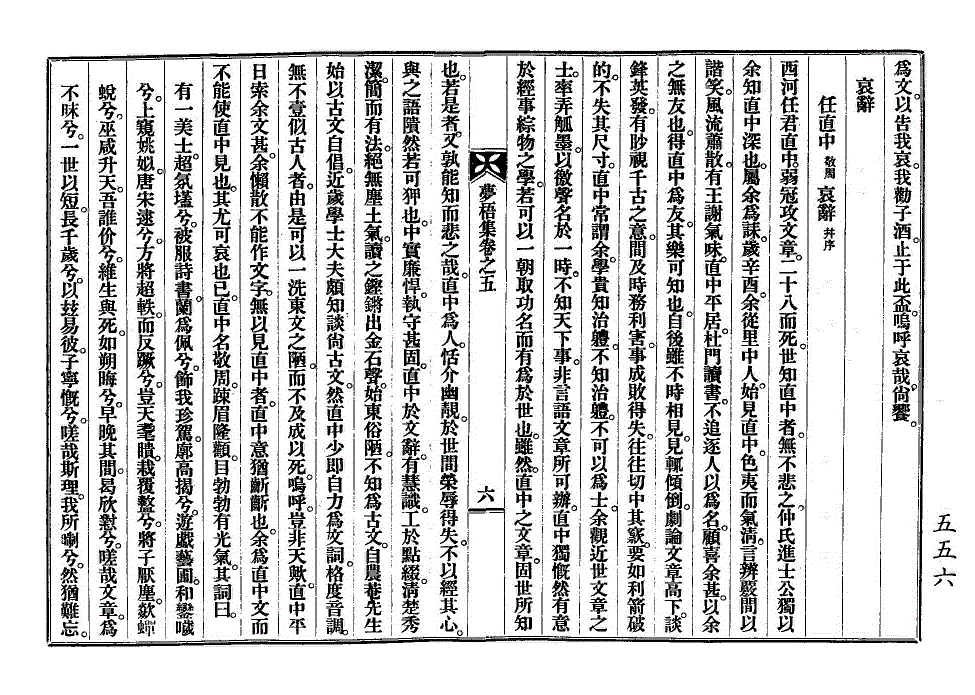 爲文。以告我哀。我勸子酒。止于此盃。嗚呼哀哉尙饗。
哀辭
任直中 敬周 哀辭 幷序
西河任君直中。弱冠攻文章。二十八而死。世知直中者。無不悲之。仲氏進士公獨以
余知直中深也。屬余爲誄。歲辛酉。余從里中人。始見直中。色夷而氣淸。言辨嚴。間以
諧笑。風流蕭散。有王謝氣味。直中平居。杜門讀書。不追逐人以爲名。顧喜余甚。以余
之無友也。得直中爲友。其樂可知也。自後雖不時相見。見輒傾倒。劇論文章高下。談
鋒英發。有眇視千古之意。間及時務利害。事成敗得失。往往切中其窽要。如利箭破
的。不失其尺寸。直中常謂余。學貴知治軆。不知治軆。不可以爲士。余觀近世文章之
士。率弄觚墨。以徼聲名於一時。不知天下事非言語文章所可辦。直中獨慨然有意
於經事綜物之學。若可以一朝取功名而有爲於世也。雖然。直中之文章。固世所知
夢梧集卷之五
六
也。若是者。又孰能知而悲之哉。直中爲人。恬介幽靚。於世間榮辱得失。不以經其心。
與之語。隤然若可狎也。中實廉悍。執守甚固。直中於文辭。有慧識。工於點綴。淸楚秀
潔。簡而有法。絕無塵土氣。讀之鏗鏘出金石聲。始東俗陋。不知爲古文。自農菴先生
始以古文自倡。近歲學士大夫頗知談尙古文。然直中少卽自力爲文詞。格度音調。
無不壹似古人者。由是可以一洗東文之陋。而不及成以死。嗚呼。豈非天歟。直中平
日索余文甚。余懶散不能作文字。無以見直中者。直中意猶齗齗也。余爲直中文。而
不能使直中見也。其尤可哀也已。直中名敬周。踈眉隆顴。目勃勃有光氣。其詞曰。
有一美士。超氛壒兮。被服詩書。蘭爲佩兮。飾我珍駕。廓高揭兮。遊戲藝圃。和鑾噦
兮。上窺姚姒。唐宋逮兮。方將超軼。而反蹶兮。豈天耄聵。栽覆盭兮。將子厭塵。欻蟬
蛻兮。巫咸升天。吾誰价兮。維生與死。如朔晦兮。早晚其間。曷欣懟兮。嗟哉文章。爲
不昧兮。一世以短。長千歲兮。以玆易彼。子寧慨兮。嗟哉斯理。我所喇兮。然猶難忘。
五五六